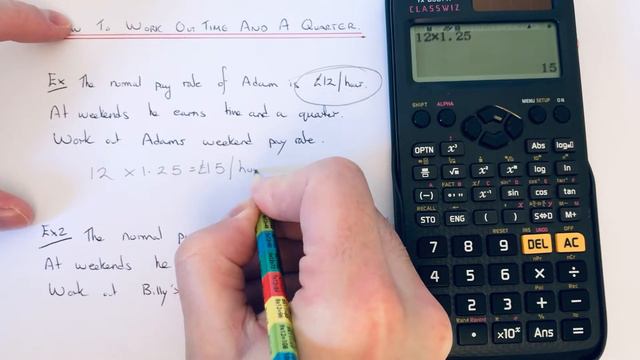 W TO WORK OUT TIME AND A QUARTER.
Ex The normal pay rate of Adam is £12/hour.
At weekends he earns time and a quarter.
Work out Adams weekend pay rate.
12 × 1.25 = £15/hou
Ex2 The normal
At weekends he
Work out Billy's
CLASSWIZ
12×1.25
15
SHIFT ALPHA MENU SETUP ON
OPTN Abs
log ln
(−) sin cos tan
RECALL
STO ENG ( ) S⇔D M+
7 8 9 DEL AC
4 5 6 × ÷
1 2 3 + −
0 • ×10ˣ Ans =